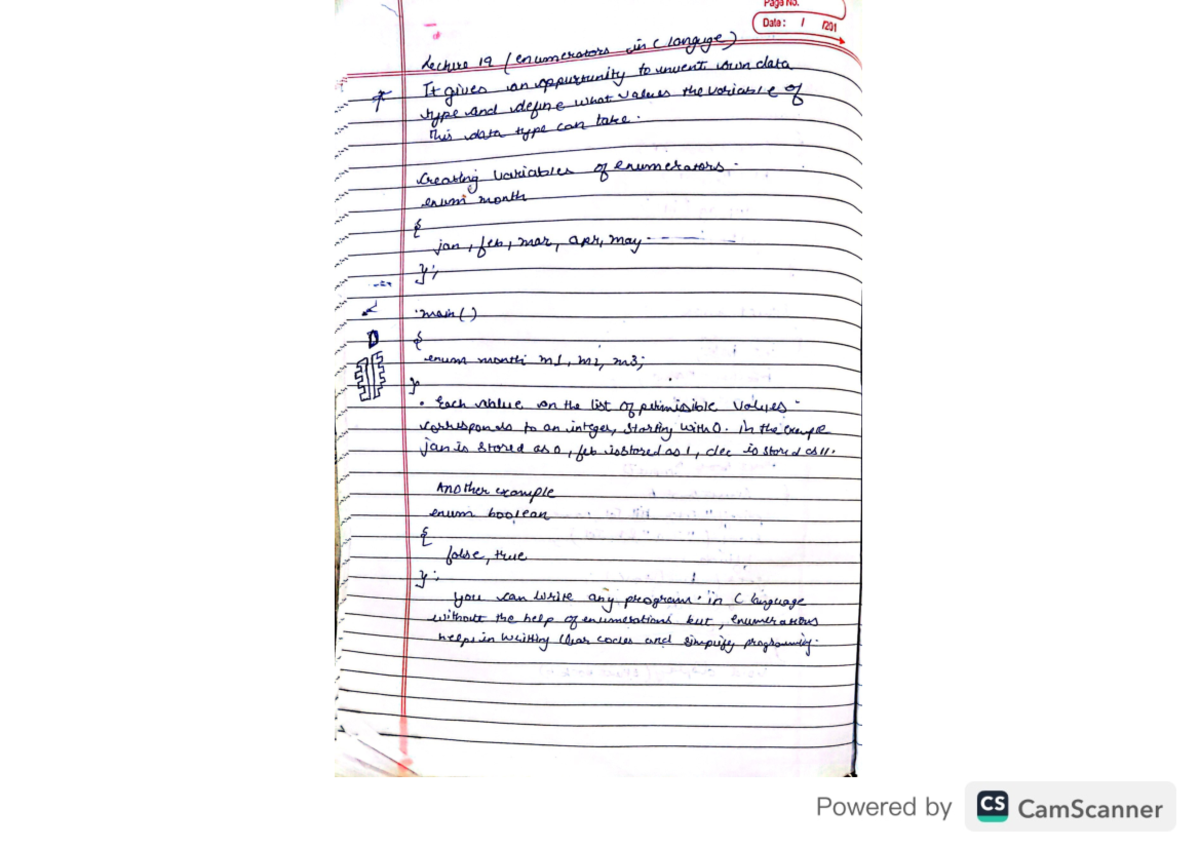 Page No.
Date: / /201
Lecture 19 (enumerators in C languge)
It gives an oppurtunity to invent own data
type and define what values the variable of
This data type can take.
Creating variables of enumerators.
enum month
{
jan, feb, mar, apr, may - - - - -
};
main()
{
enum month m1, m2, m3;
}
• Each value on the list of permissible values
corresponds to an integer, starting with 0. In the example
jan is stored as 0, feb is stored as 1, dec is stored as 11.
Another example
enum boolean
{
false, true
};
you can write any program in C language
without the help of enumerations but, enumerators
helps in writting clear codes and simplify programming.
Powered by CS CamScanner